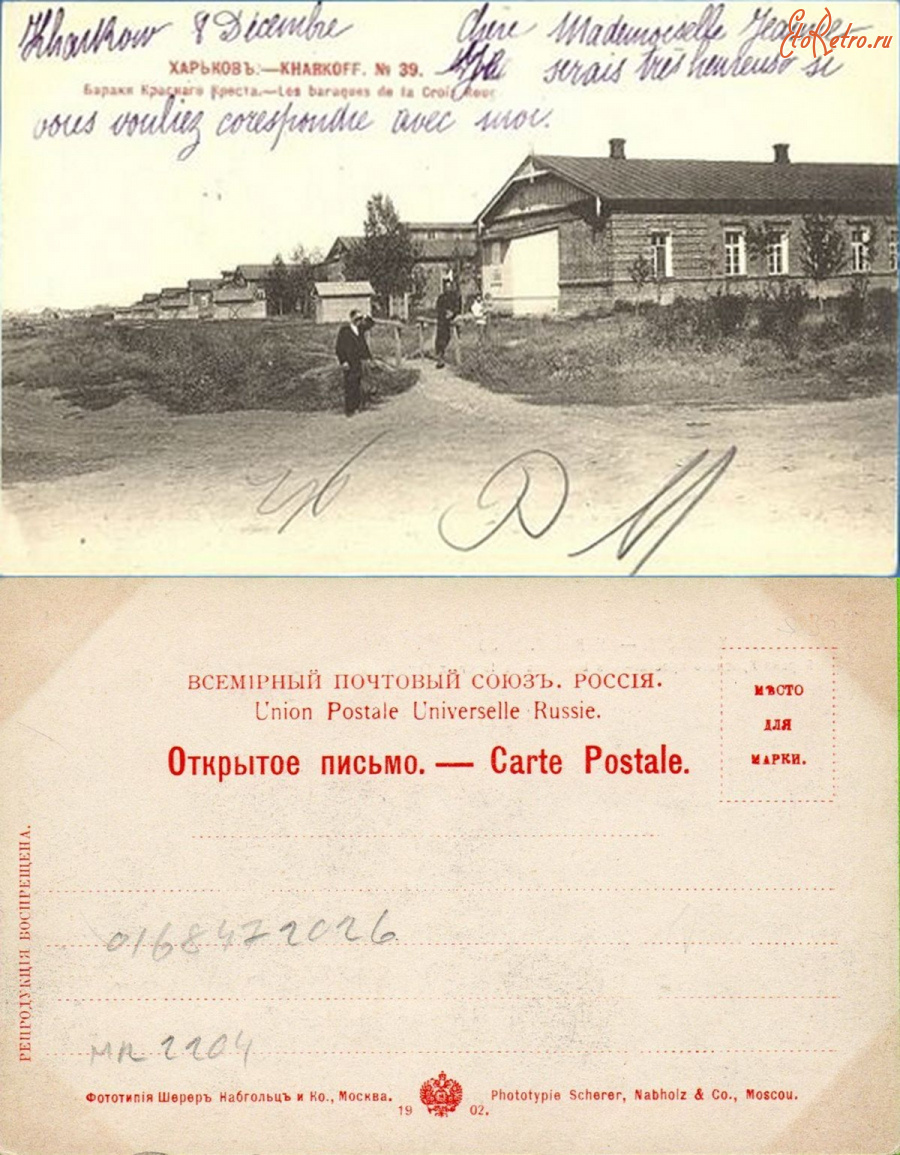 Kharkow 8 Décembre Chère Mademoiselle Jeanne
EtoRetro.ru
ХАРЬКОВЪ.—KHARKOFF. № 39. Je serais très heureuse si
Бараки Краснаго Креста.—Les baraques de la Croix Rouge
vous vouliez corespondre avec moi.
ВСЕМІРНЫЙ ПОЧТОВЫЙ СОЮЗЪ. РОССІЯ.
Union Postale Universelle Russie.
Открытое письмо. — Carte Postale.
МѢСТО
ДЛЯ
МАРКИ.
РЕПРОДУКЦІЯ ВОСПРЕЩЕНА.
0168472026
МЛ 2204
Фототипія Шереръ Набгольцъ и Ко., Москва.
1902.
Phototypie Scherer, Nabholz & Co., Moscou.